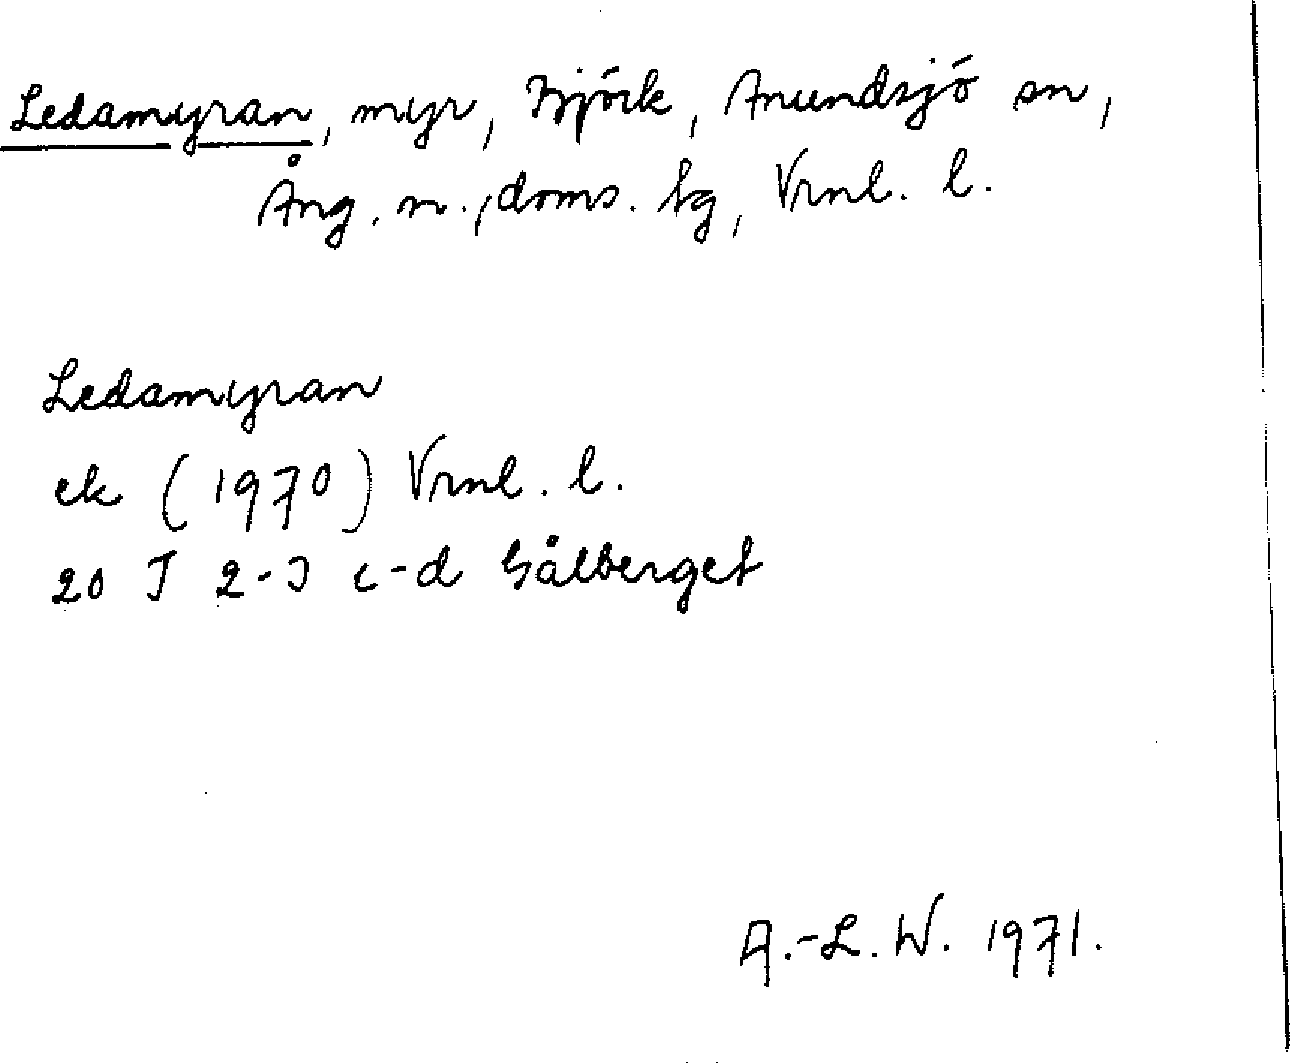 Ledamyran, myr, Björk, Anundsjö sn,
Ång. n., doms. hg, Vrnl. l.
Ledamyran
ek (1970) Vrnl. l.
20 I 2-3 c-d Gålberget
A.-L. W. 1971.